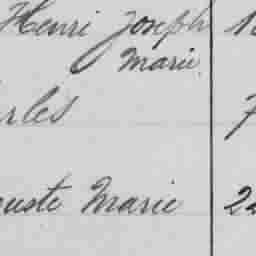 Henri Joseph
Marie
rles
uste Marie 22